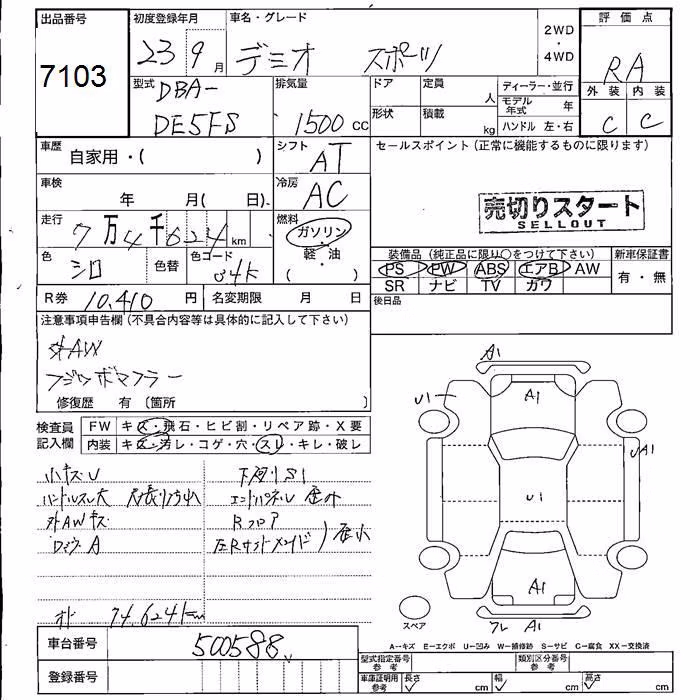 出品番号
7103
初度登録年月
23 9月
車名・グレード
デミオ スポーツ
2WD
・
4WD
評価点
RA
外装 内装
C C
型式
DBA-
DE5FS
排気量
1500 cc
ドア
定員
人
形状
積載
kg
ディーラー・並行
モデル年式 年
ハンドル 左・右
車歴
自家用・( )
シフト
AT
セールスポイント (正常に機能するものに限ります)
車検
年 月( 日)
冷房
AC
売切りスタート
SELLOUT
走行
7万4千624km
燃料
ガソリン
軽・油
( )
色
シロ
色替
色コード
34K
装備品 (純正品に限り○をつけて下さい)
PS PW ABS エアB AW
SR ナビ TV カワ
新車保証書
有・無
R券 10,410 円
名変期限 月 日
後日品
注意事項申告欄 (不具合内容等は具体的に記入して下さい)
外AW
フジツボマフラー
修復歴 有 〔箇所 〕
検査員
記入欄
FW キズ・飛石・ヒビ割・リペア跡・X要
内装 キズ・汚レ・コゲ・穴・スレ・キレ・破レ
小キズU
ハンドルスレ大
外AWキズ
下廻りS1
エンドパネルU
Rフロア
左Rサイドメンバ
74,624km
A1
U1
A1
U1
UA1
A1
A1
スペア
A→キズ E→エクボ U→凹み W→補修跡 S→サビ C→腐食 XX→交換済
車台番号
500588
登録番号
型式指定番号
参考
類別区分番号
参考
車庫証明用
参考
長さ cm
幅 cm
高さ cm